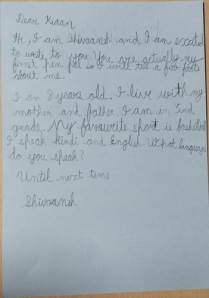 Dear Kiaan
Hi, I am Shivaansh and I am excited
to write to you. You are actually my
first pen pal so I will tell a few facts
about me.
I am 8 years old. I live with my
mother and father. I am in 2nd
grade. My favourite sport is basketball
I speak hindi and English. What languages
do you speak?
Until next time
Shivaansh